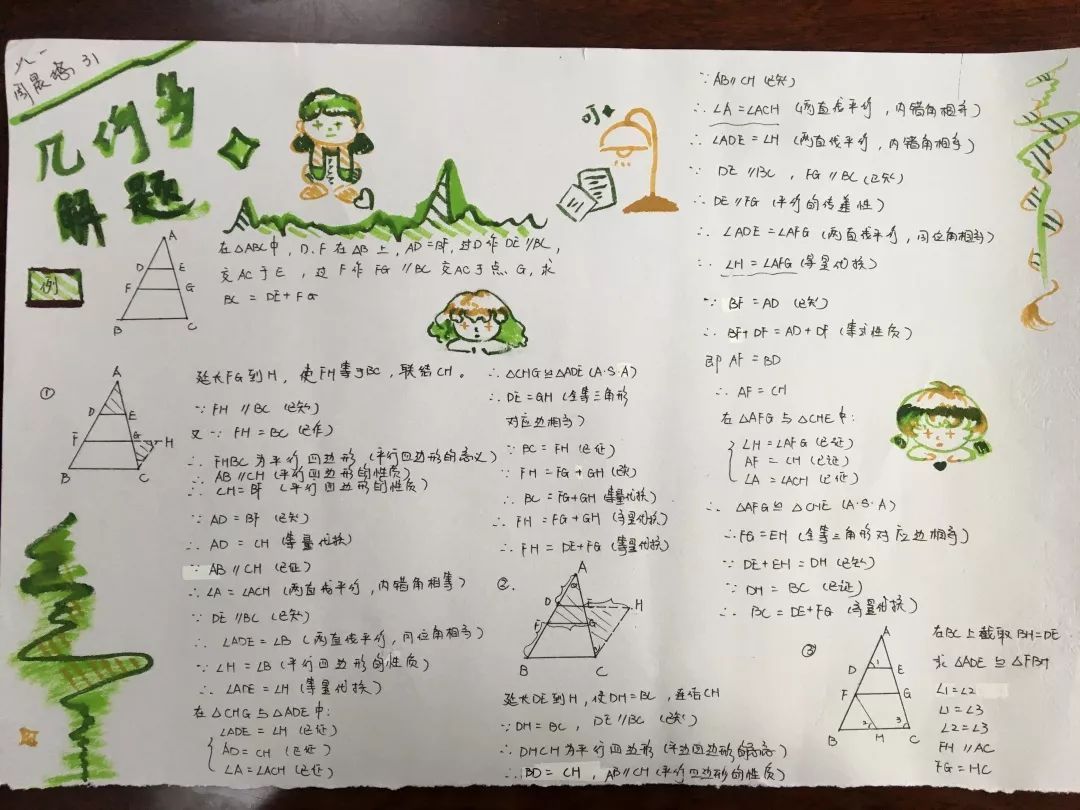 八一
31
几何多
解题
叮
例
A
D E
F G
B C
在△ABC中，D、F在AB上，AD=BF，过D作DE∥BC，
交AC于E，过F作FG∥BC交AC于点G，求
BC = DE+FG
①
A
D E
F G H
B C
延长FG到H，使FH等于BC，联结CH。
∵ FH∥BC（已知）
又∵ FH=BC（已作）
∴ FHBC为平行四边形（平行四边形的意义）
∴ AB∥CH（平行四边形的性质）
∴ CH=BF（平行四边形的性质）
∵ AD=BF（已知）
∴ AD=CH（等量代换）
∵ AB∥CH（已证）
∴ ∠A=∠ACH（两直线平行，内错角相等）
∵ DE∥BC（已知）
∴ ∠ADE=∠B（两直线平行，同位角相等）
∵ ∠H=∠B（平行四边形的性质）
∴ ∠ADE=∠H（等量代换）
在△CHG与△ADE中：
∠ADE=∠H（已证）
AD=CH（已证）
∠A=∠ACH（已证）
∴ △CHG≌△ADE（A.S.A）
∴ DE=GH（全等三角形
对应边相等）
∵ BC=FH（已证）
∵ FH=FG+GH（已知）
∴ BC=FG+GH（等量代换）
∴ FH=FG+GH（等量代换）
∴ FH=DE+FG（等量代换）
②.
A
D E H
F G
B C
延长DE到H，使DH=BC，连结CH
∵ DH=BC，DE∥BC（已知）
∴ DHCH为平行四边形（平行四边形的意义）
∴ BD=CH，AB∥CH（平行四边形的性质）
∵ AB∥CH（已知）
∴ ∠A=∠ACH（两直线平行，内错角相等）
∴ ∠ADE=∠H（两直线平行，内错角相等）
∵ DE∥BC，FG∥BC（已知）
∴ DE∥FG（平行的传递性）
∴ ∠ADE=∠AFG（两直线平行，同位角相等）
∴ ∠H=∠AFG（等量代换）
∵ BF=AD（已知）
∴ BF+DF=AD+DF（等式性质）
即AF=BD
∴ AF=CH
在△AFG与△CHE中：
∠H=∠AFG（已证）
AF=CH（已证）
∠A=∠ACH（已证）
∴ △AFG≌△CHE（A.S.A）
∴ FG=EH（全等三角形对应边相等）
∵ DE+EH=DH（已知）
∵ DH=BC（已证）
∴ BC=DE+FG（等量代换）
③
A
D 1 E
F G
2 3
B H C
在BC上截取BH=DE
求△ADE≌△FBH
∠1=∠2
∠1=∠3
∠2=∠3
FH∥AC
FG=HC